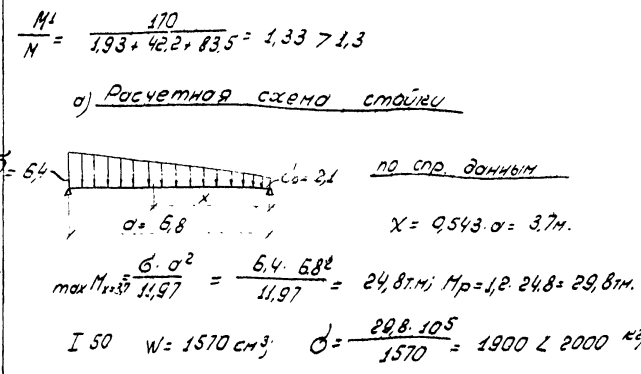 M¹/M = 170/(1,93 + 42,2 + 83,5) = 1,33 > 1,3
а) Расчетная схема стойки
= 6,4
= 2,1
по спр. данным
x
a = 6,8
X = 0,543·a = 3,7м.
max Mx=3,7 = б·a²/11,97 = 6,4·6,8²/11,97 = 24,8тм; Mр = 1,2·24,8 = 29,8тм.
I 50 W = 1570 см³; б = 29,8·10⁵/1570 = 1900 < 2000 кг